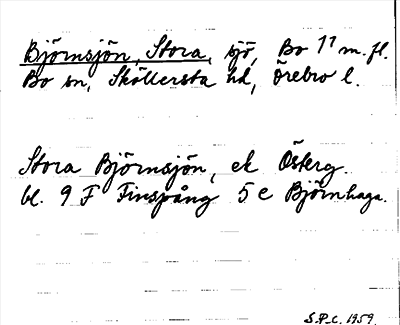 Björnsjön, Stora, sjö, Bo 11 m.fl.
Bo sn, Sköllersta hd, Örebro l.
Stora Björnsjön, ek Österg.
bl. 9 F Finspång 5 e Björnhaga.
S.P.C. 1959.